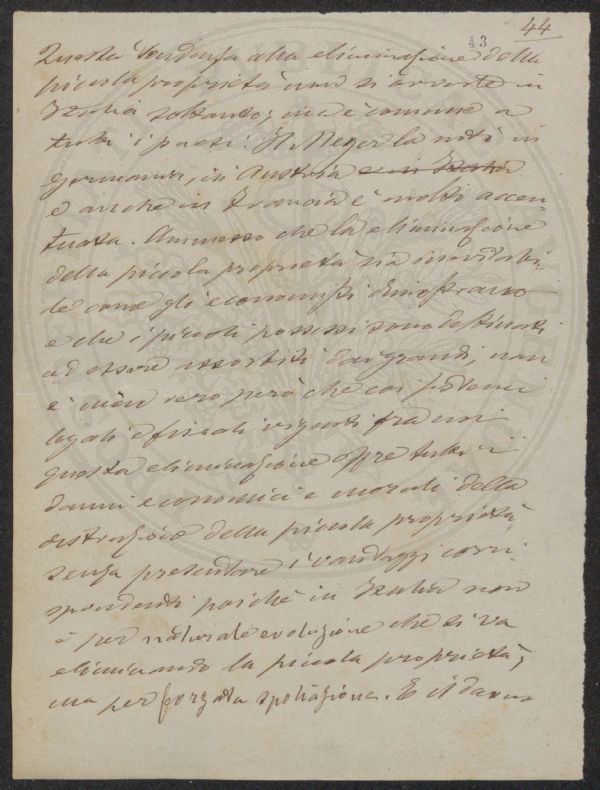 44
43
Questa tendenza alla eliminazione della
piccola proprietà non si avverte in
Italia soltanto; ma è comune a
tutti i paesi. Il Meyer la notò in
Germania, in Austria e in Italia
e anche in Francia è molto accen-
tuata. Ammesso che la eliminazione
della piccola proprietà sia inevitabi-
le come gli economisti dimostrano
e che i piccoli possessi sono destinati
ad essere assorbiti dai grandi, non
è men vero però che coi sistemi
legali e fiscali vigenti fra noi
questa eliminazione offre tutti i
danni economici e morali della
distruzione della piccola proprietà
senza presentare i vantaggi corri-
spondenti poichè in Italia non
è per naturale evoluzione che si va
eliminando la piccola proprietà;
ma per forzata spoliazione. E il danno